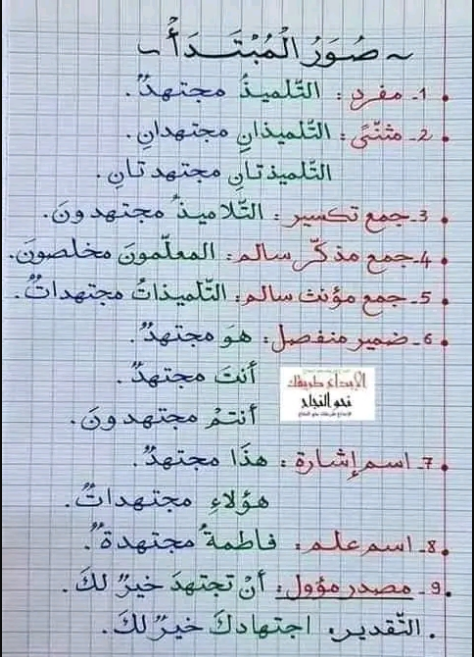 ~ صُوَرُ الْمُبْتَدَأ ~
1- مفرد : التّلميذُ مجتهدٌ.
2- مثنّىً : التّلميذانِ مجتهدانِ.
التّلميذتانِ مجتهدتانِ.
3- جمع تكسير : التّلاميذُ مجتهدونَ.
4- جمع مذكّر سالم : المعلّمونَ مخلصونَ.
5- جمع مؤنث سالم : التّلميذاتُ مجتهداتٌ.
6- ضمير منفصل : هوَ مجتهدٌ.
أنتَ مجتهدٌ.
الإبداع طريقك
نحو النجاح
أنتمْ مجتهدونَ.
7- اسم إشارة : هذَا مجتهدٌ.
هؤلاءِ مجتهداتٌ.
8- اسم علم : فاطمةُ مجتهدةٌ.
9- مصدر مؤول : أنْ تجتهدَ خيرٌ لكَ.
. التّقدير : اجتهادكَ خيرٌ لكَ.